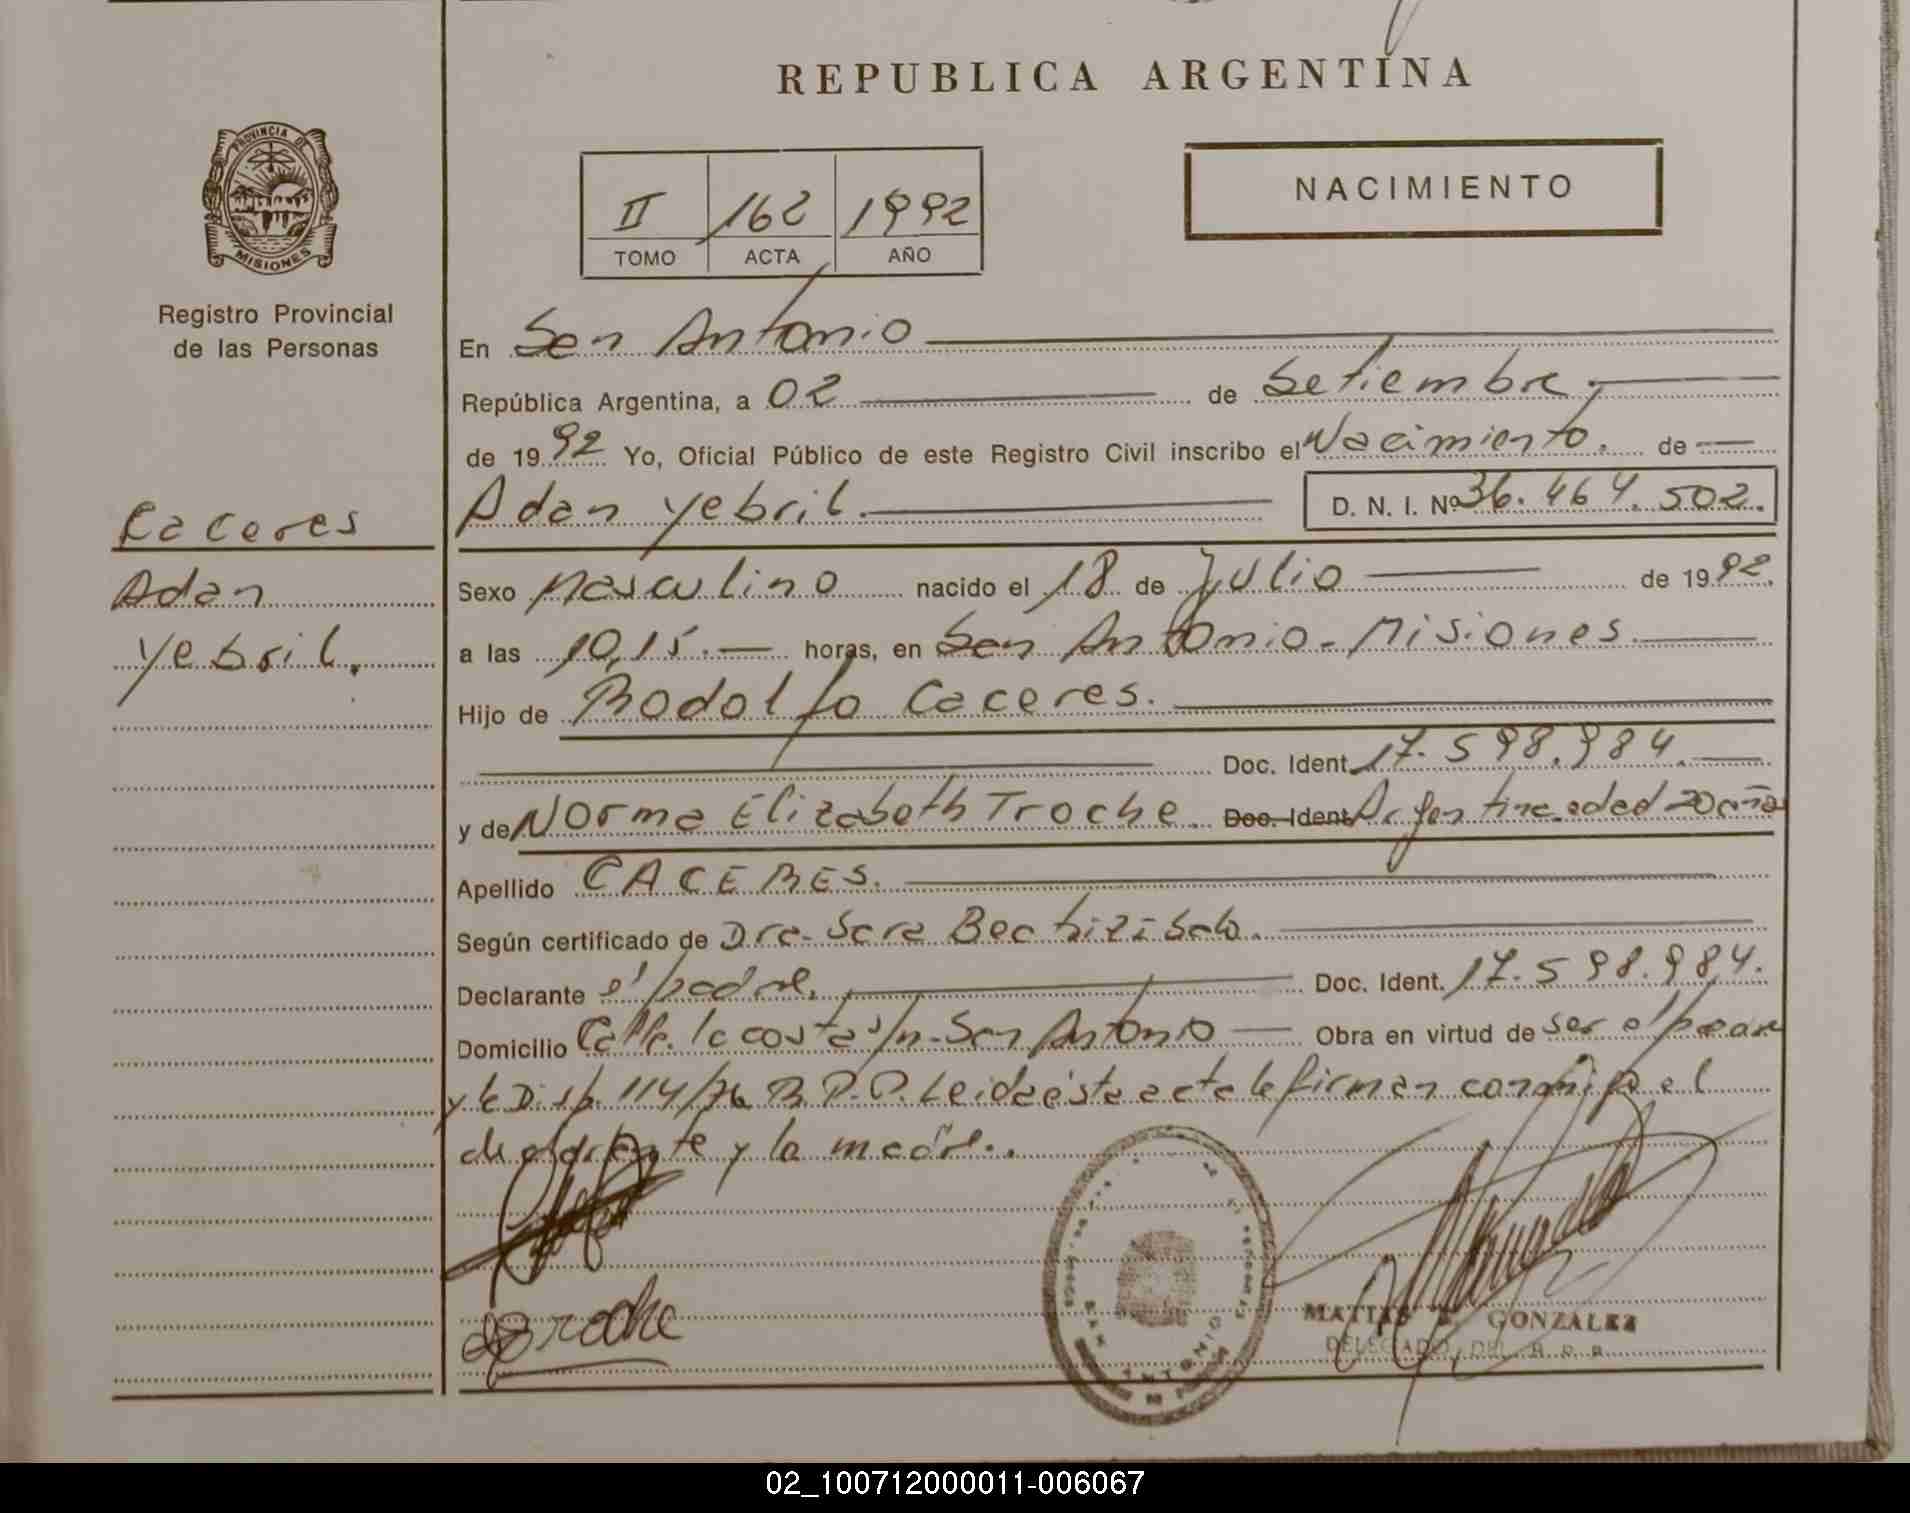 REPUBLICA ARGENTINA
PROVINCIA DE
MISIONES
Registro Provincial
de las Personas
NACIMIENTO
II 162 1992
TOMO ACTA AÑO
En San Antonio
República Argentina, a 02 de Setiembre.
de 1992 Yo, Oficial Público de este Registro Civil inscribo el Nacimiento. de
Adan Yebril. D. N. I. Nº 36.464.502.
Caceres
Adan
Yebril.
Sexo Masculino nacido el 18 de Julio de 1992.
a las 10,15.- horas, en San Antonio-Misiones.
Hijo de Rodolfo Caceres.
Doc. Ident. 17.598.984.
y de Norma Elizabeth Troche. Doc. Ident. Argentina edad 20 años
Apellido CACERES.
Según certificado de Dra. Sara Beatriz
Declarante el padre. Doc. Ident. 17.598.984.
Domicilio Calle. la costa s/n-San Antonio Obra en virtud de ser el padre
y la Disp. 114/76 R.P.P. Leida ésta acta la firman conmigo el
declarante y la madre..
Troche
SAN ANTONIO
MATIAS GONZALEZ
DELEGADO DEL R.P.P.
02_100712000011-006067